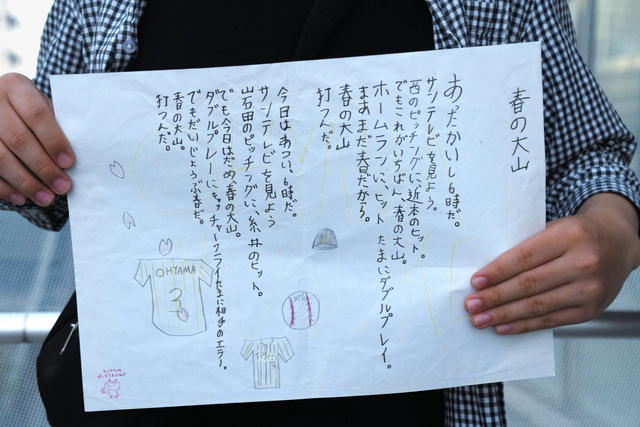 春の大山
あったかいし6時だ。
サンテレビを見よう。
西のピッチングに、近本のヒット。
でもこれがいちばん、春の大山。
ホームランに、ヒットたまにダブルプレイ。
まあまだ春だから。
春の大山
打つんだ。
今日はあつい、6時だ。
サンテレビを見よう
岩田のピッチングに、糸井のヒット。
でも今日はだめ、春の大山。
ダブルプレーに、キャッチャーフライたまに相手のエラー。
でもだいじょうぶ春だ。
春の大山。
打つんだ。
OHYAMA
3